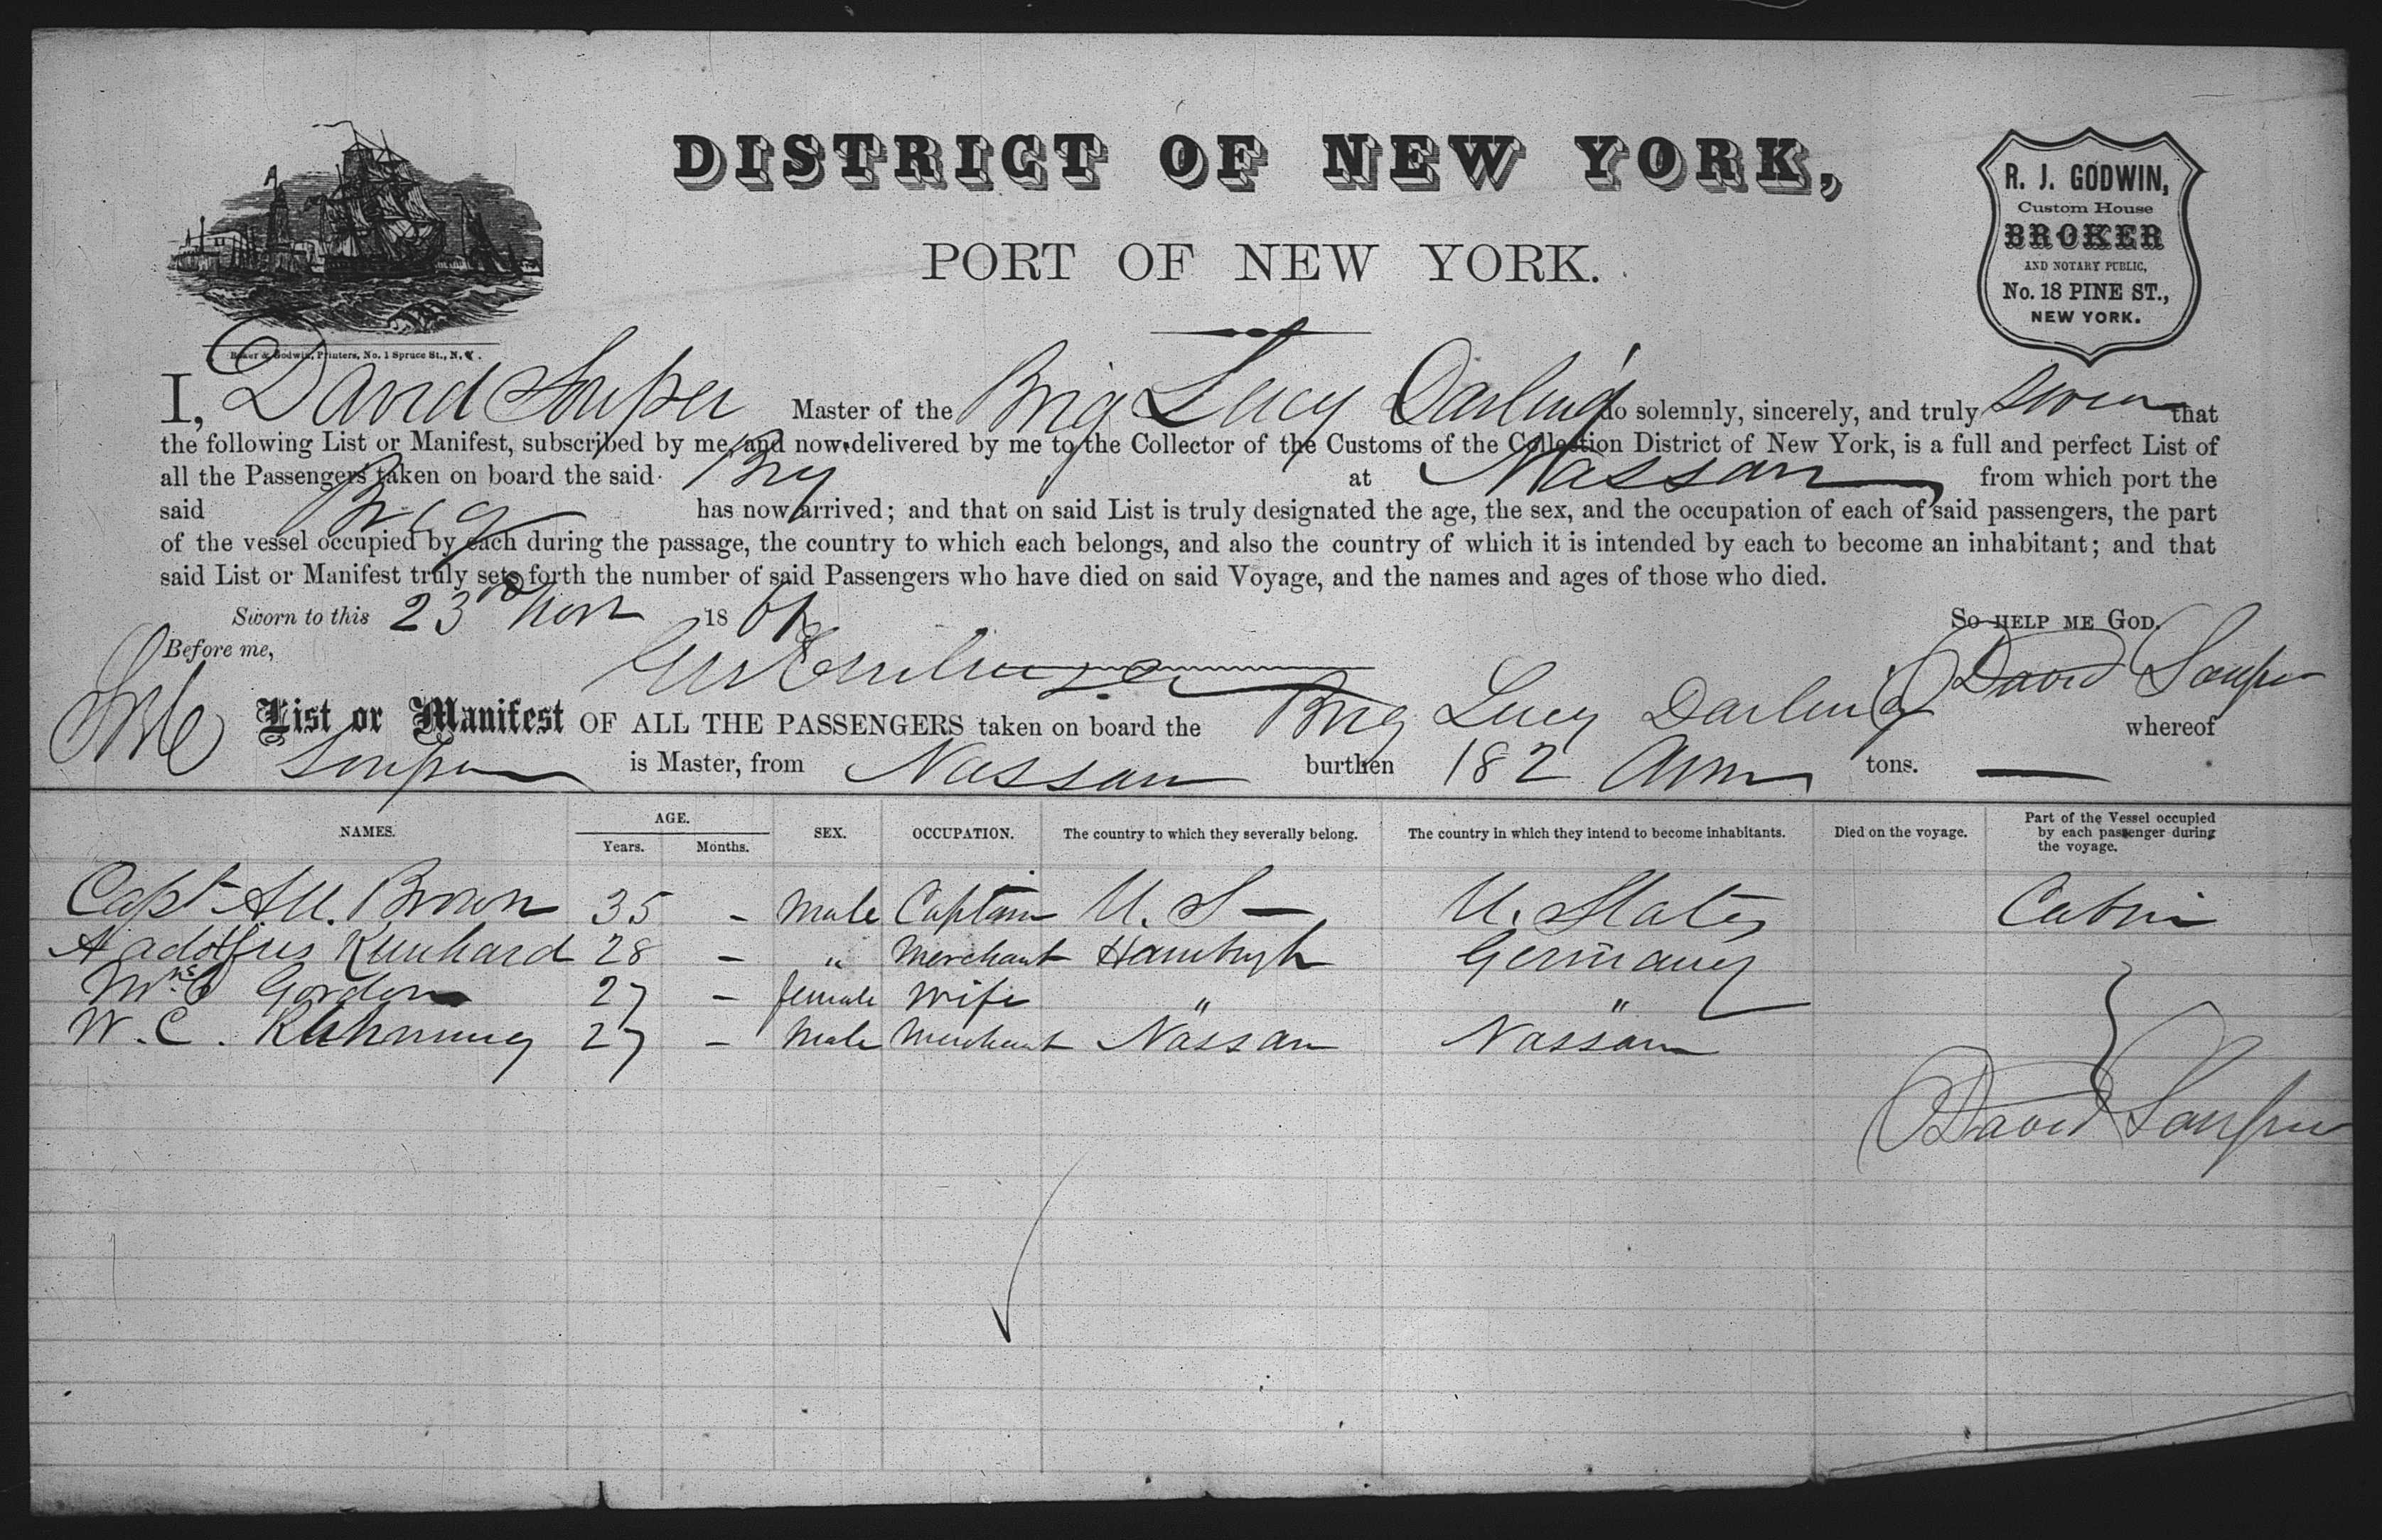 DISTRICT OF NEW YORK,
PORT OF NEW YORK.
R. J. GODWIN,
Custom House
BROKER
AND NOTARY PUBLIC,
No. 18 PINE ST.,
NEW YORK.
Baker & Godwin, Printers, No. 1 Spruce St., N. Y.
I, David Souper Master of the Brig Lucy Darling do solemnly, sincerely, and truly swear that
the following List or Manifest, subscribed by me, and now delivered by me to the Collector of the Customs of the Collection District of New York, is a full and perfect List of
all the Passengers taken on board the said Brig at Nassau from which port the
said Brig has now arrived; and that on said List is truly designated the age, the sex, and the occupation of each of said passengers, the part
of the vessel occupied by each during the passage, the country to which each belongs, and also the country of which it is intended by each to become an inhabitant; and that
said List or Manifest truly sets forth the number of said Passengers who have died on said Voyage, and the names and ages of those who died.
Sworn to this 23rd Nov 1861 So HELP ME GOD.
Before me, David Souper
List or Manifest OF ALL THE PASSENGERS taken on board the Brig Lucy Darling whereof
Souper is Master, from Nassau burthen 182 tons.
NAMES. AGE. Years. Months. SEX. OCCUPATION. The country to which they severally belong. The country in which they intend to become inhabitants. Died on the voyage. Part of the Vessel occupied by each passenger during the voyage.
Capt Brown 35 - Male Captain U. S - U. States Cabin
Adolfus Kunhard 28 - " Merchant Hamburgh Germany
Gordon 27 - female Wife " "
W. C. 27 - Male Merchant Nassau Nassau
David Souper